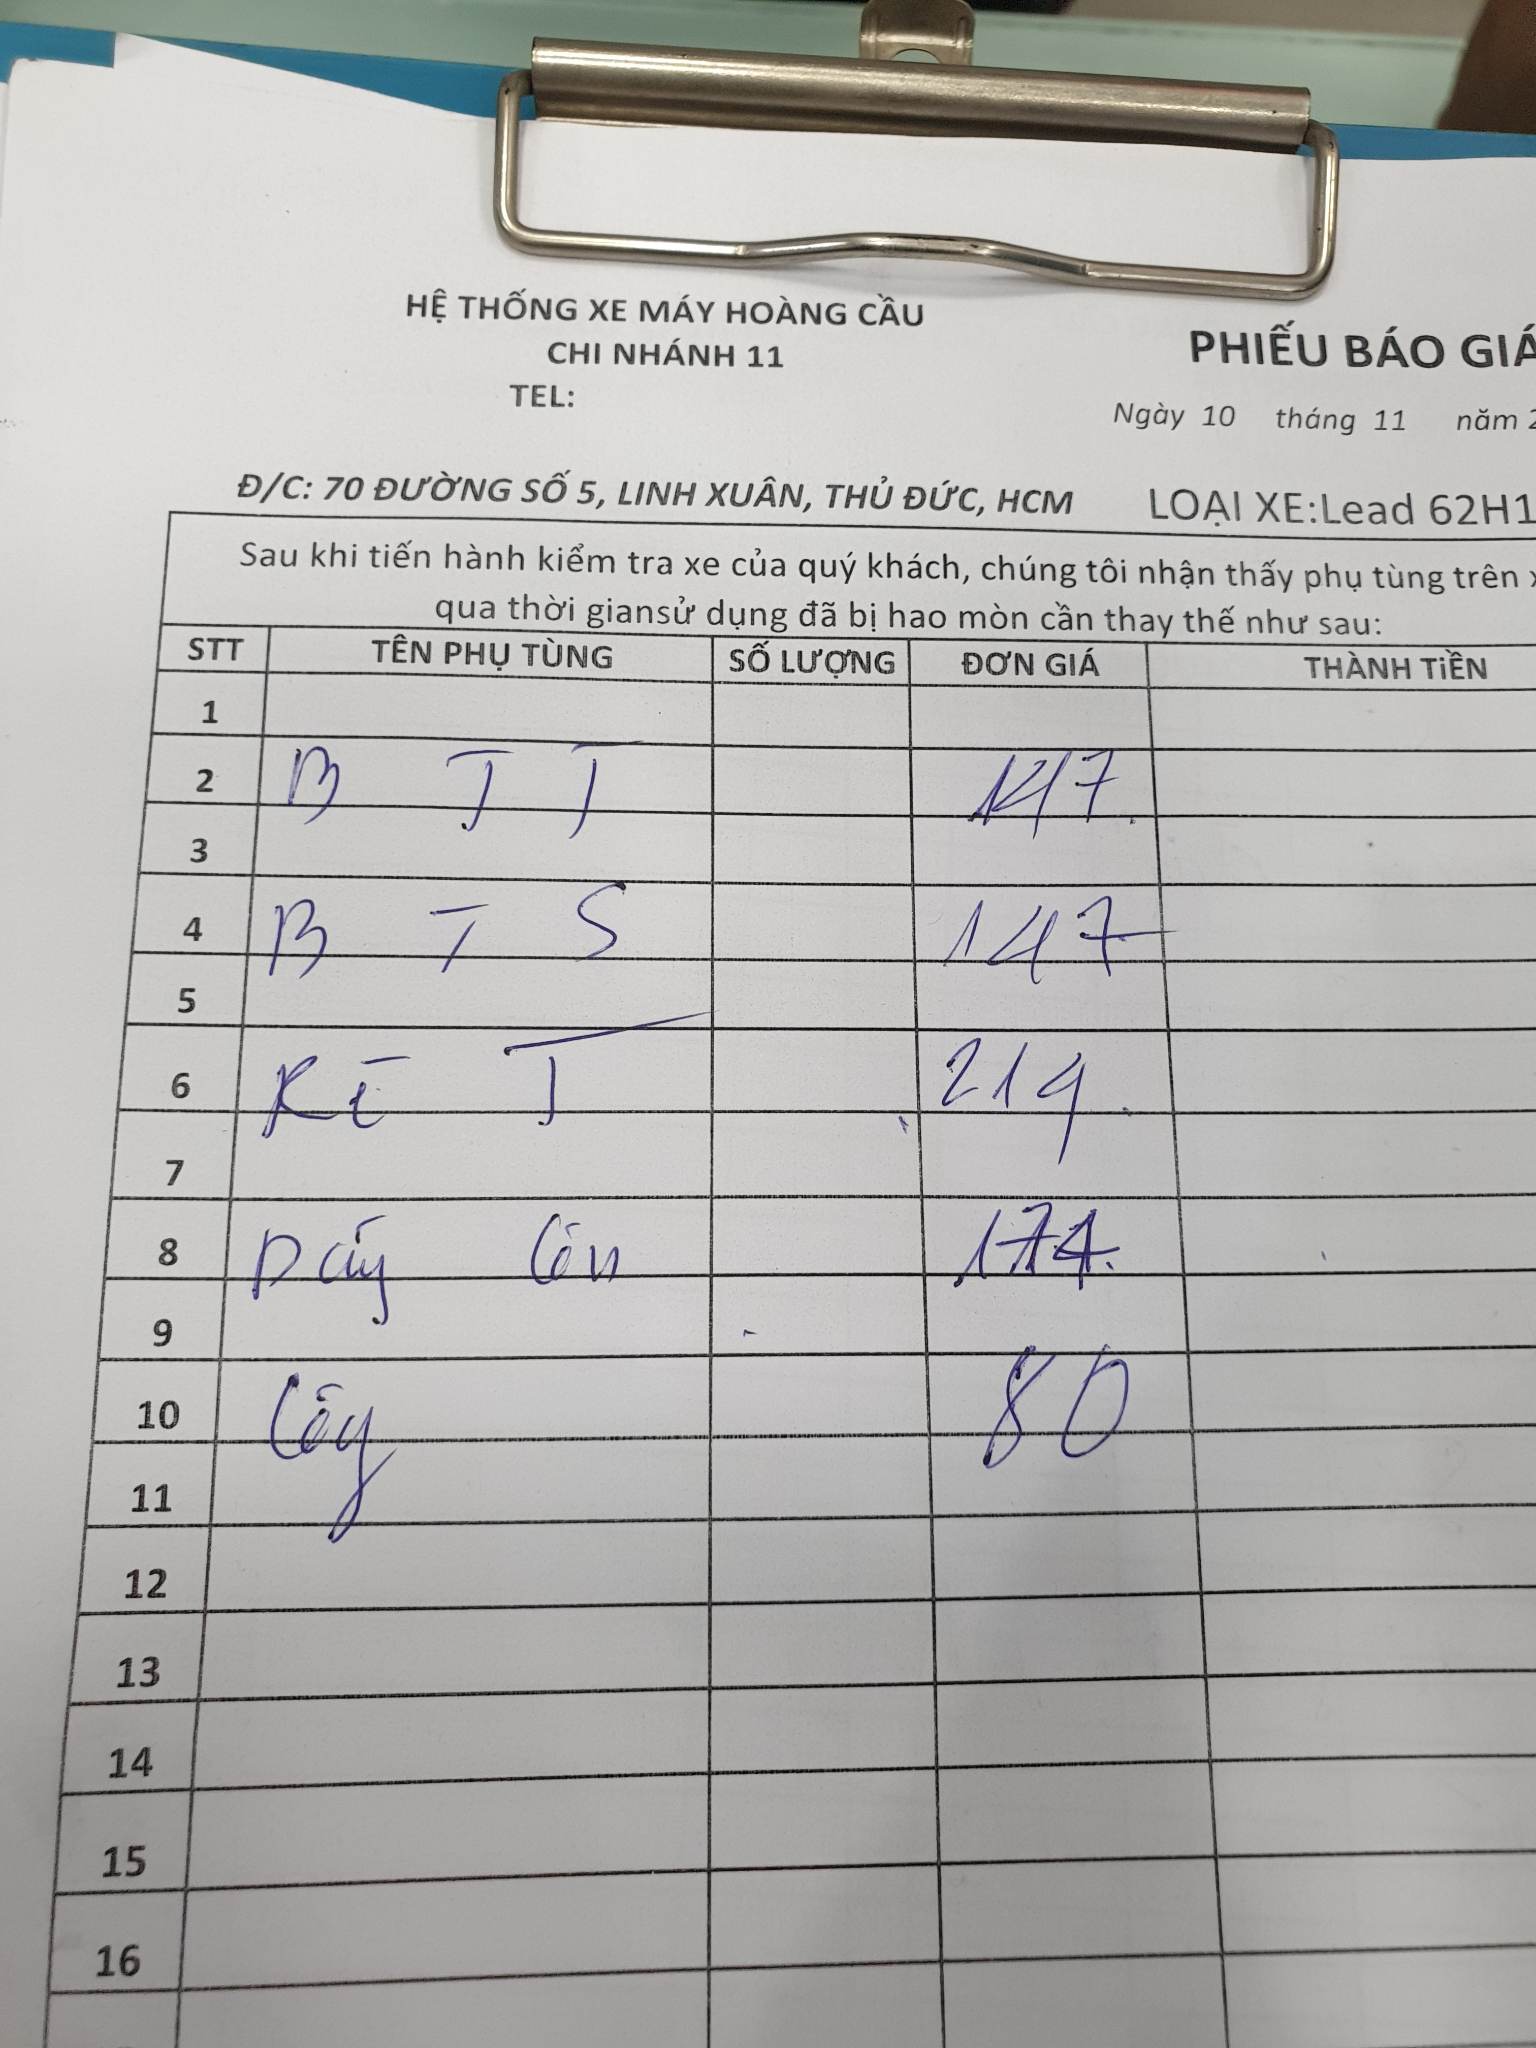 HỆ THỐNG XE MÁY HOÀNG CẦU
CHI NHÁNH 11
TEL:
PHIẾU BÁO GIÁ
Ngày 10 tháng 11 năm 2
Đ/C: 70 ĐƯỜNG SỐ 5, LINH XUÂN, THỦ ĐỨC, HCM LOẠI XE:Lead 62H1
Sau khi tiến hành kiểm tra xe của quý khách, chúng tôi nhận thấy phụ tùng trên x
qua thời giansử dụng đã bị hao mòn cần thay thế như sau:
STT TÊN PHỤ TÙNG SỐ LƯỢNG ĐƠN GIÁ THÀNH TiỀN
1
2 B T T 147.
3
4 B T S 147
5
6 T 214.
7
8 Dây Côn 174.
9
10 80
11
12
13
14
15
16